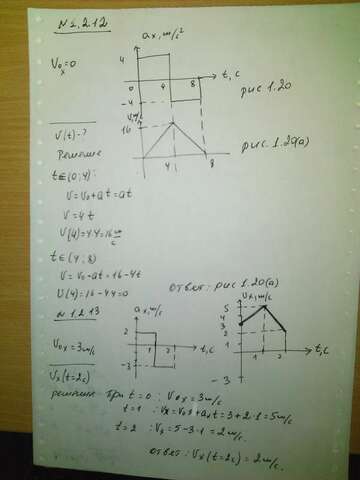 №1.2.12
V₀ₓ=0
aₓ, м/с²
4
0
4
8
t, с
-4
рис 1.20
V, м/с
16
4
8
рис. 1.20(а)
V(t)-?
Решение
t∈(0;4):
V=V₀+at=at
V=4t
V(4)=4·4=16 м/с
t∈(4;8)
V=V₀-at=16-4t
V(4)=16-4·4=0
ответ: рис 1.20(а)
№1.2.13
V₀ₓ=3м/с
Vₓ(t=2с)
aₓ, м/с
2
1
2
t, с
-3
Vₓ, м/с
5
4
3
2
1
1
2
t, с
-3
решение: При t=0: V₀ₓ=3м/с
t=1 : Vₓ=V₀ₓ+aₓt=3+2·1=5м/с
t=2 : Vₓ=5-3·1=2м/с.
ответ: Vₓ(t=2с)=2м/с.